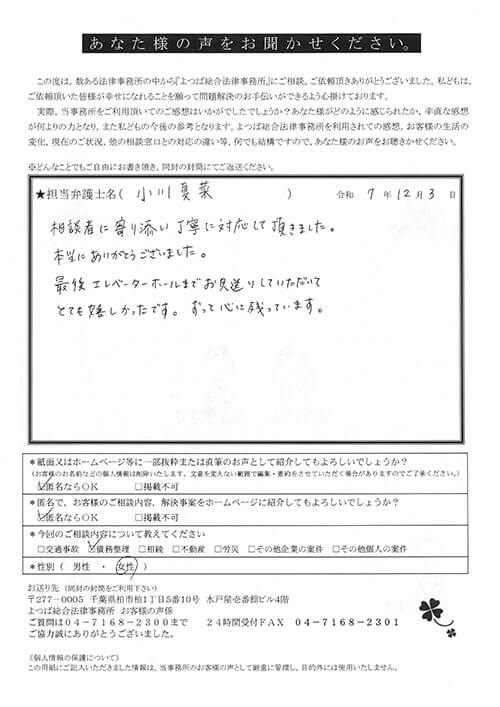 あなた様の声をお聞かせください。
この度は、数ある法律事務所の中から『よつば総合法律事務所』にご相談、ご依頼頂きありがとうございました。私どもは、
ご依頼頂いた皆様が幸せになれることを願って問題解決のお手伝いができるよう心掛けております。
実際、当事務所をご利用頂いてのご感想はいかがでしたでしょうか？あなた様がどのように感じられたか、率直な感想
が何よりの力となり、また私どもの今後の参考となります。よつば総合法律事務所を利用されての感想、お客様の生活の
変化、現在のご状況、他の相談窓口との対応の違い等、何でも結構ですので、あなた様のお声をお聴きかせください。
※どんなことでもご自由にお書き頂き、同封の封筒にてご返送ください。
★担当弁護士名( 小川 夏菜 ) 令和 7 年 12 月 3 日
相談者に寄り添い丁寧に対応して頂きました。
本当にありがとうございました。
最後エレベーターホールまでお見送りしていただいて
とても嬉しかったです。ずっと心に残っています。
*紙面又はホームページ等に一部抜粋または直筆のお声として紹介してもよろしいでしょうか？
(お客様のお名前などの個人情報は削除いたします。文意を変えない範囲で編集・要約をさせていただく場合がありますのでご了承ください。)
☑匿名ならOK □掲載不可
*匿名で、お客様のご相談内容、解決事案をホームページに紹介してもよろしいでしょうか？
☑匿名ならOK □掲載不可
*今回のご相談内容について教えてください
□交通事故 ☑債務整理 □相続 □不動産 □労災 □その他企業の案件 □その他個人の案件
*性別( 男性 ・ 女性 )
お送り先 (同封の封筒をご利用下さい)
〒277-0005 千葉県柏市柏1丁目5番10号 水戸屋壱番館ビル4階
よつば総合法律事務所 お客様の声係
ご質問は04-7168-2300まで 24時間受付FAX 04-7168-2301
ご協力誠にありがとうございました。
《個人情報の保護について》
この用紙にご記入いただきました情報は、当事務所のお客様の声として厳重に管理し、目的外には使用いたしません。